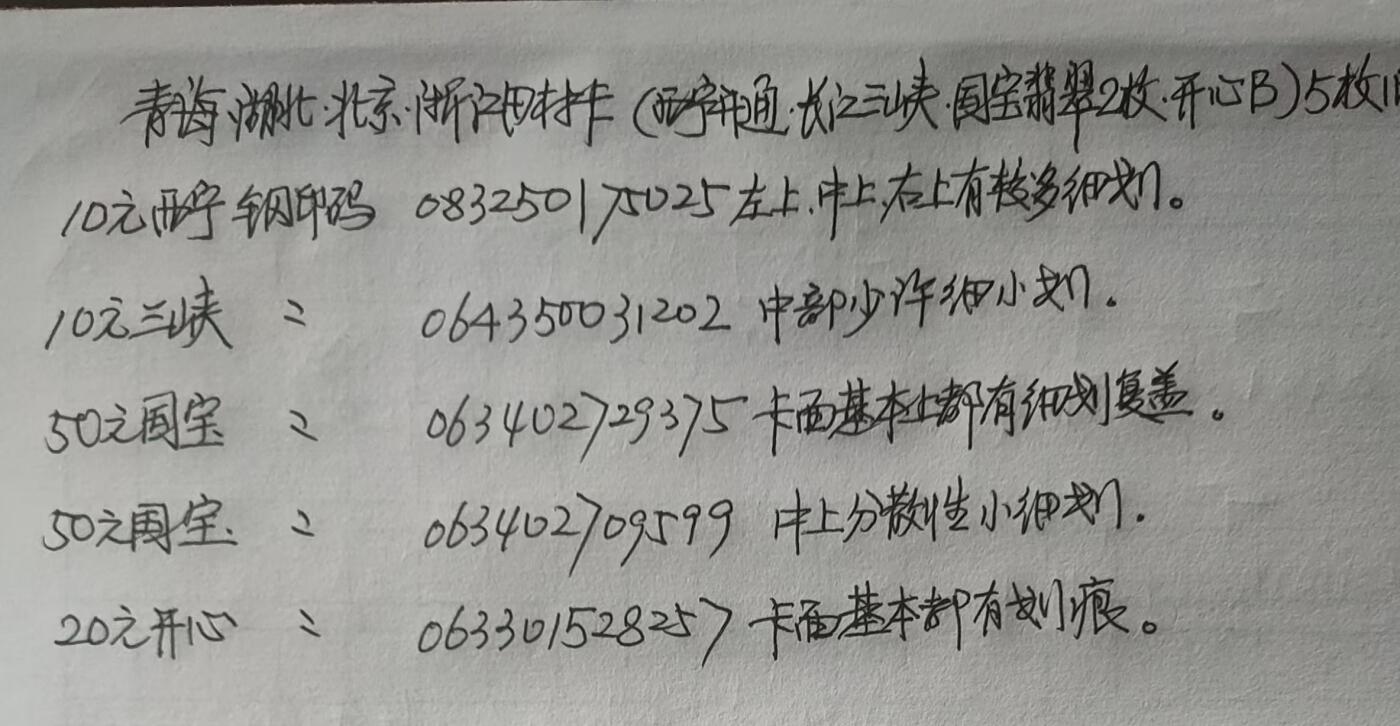 青海·湖北·北京·浙江田村卡(西宁开通·长江三峡·国宝翡翠2枚·开心B)5枚旧
10元西宁钢印码 083250175025左上.中上.右上有较多细划。
10元三峡 〃 064350031202 中部少许细小划.
50元国宝 〃 063402729375 卡面基本上都有细划复盖。
50元国宝. 〃 063402709599 中上分散性小细划.
20元开心 〃 063301528257 卡面基本都有划痕。